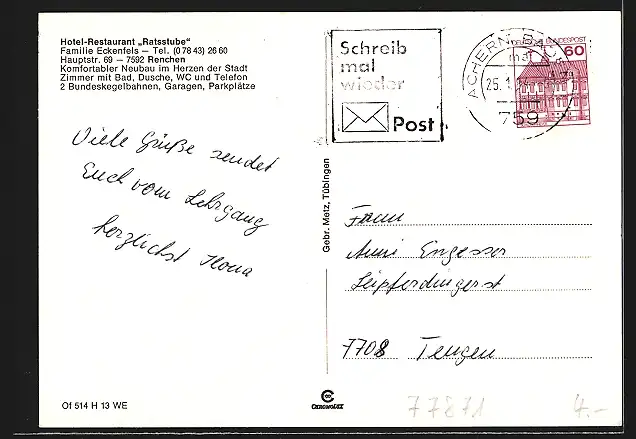 Hotel-Restaurant „Ratsstube“
Familie Eckenfels — Tel. (0 78 43) 26 60
Hauptstr. 69 — 7592 Renchen
Komfortabler Neubau im Herzen der Stadt
Zimmer mit Bad, Dusche, WC und Telefon
2 Bundeskegelbahnen, Garagen, Parkplätze
Schreib
mal
wieder
Post
ACHERN
25.1
759
DEUTSCHE BUNDESPOST
60
Viele Grüße sendet
Euch vom Lehrgang
herzlichst Ilona
Gebr. Metz, Tübingen
Frau
Anni Engesser
Leipferdingerst
7708 Tengen
Of 514 H 13 WE
CHROMOLUX
77871
4.-